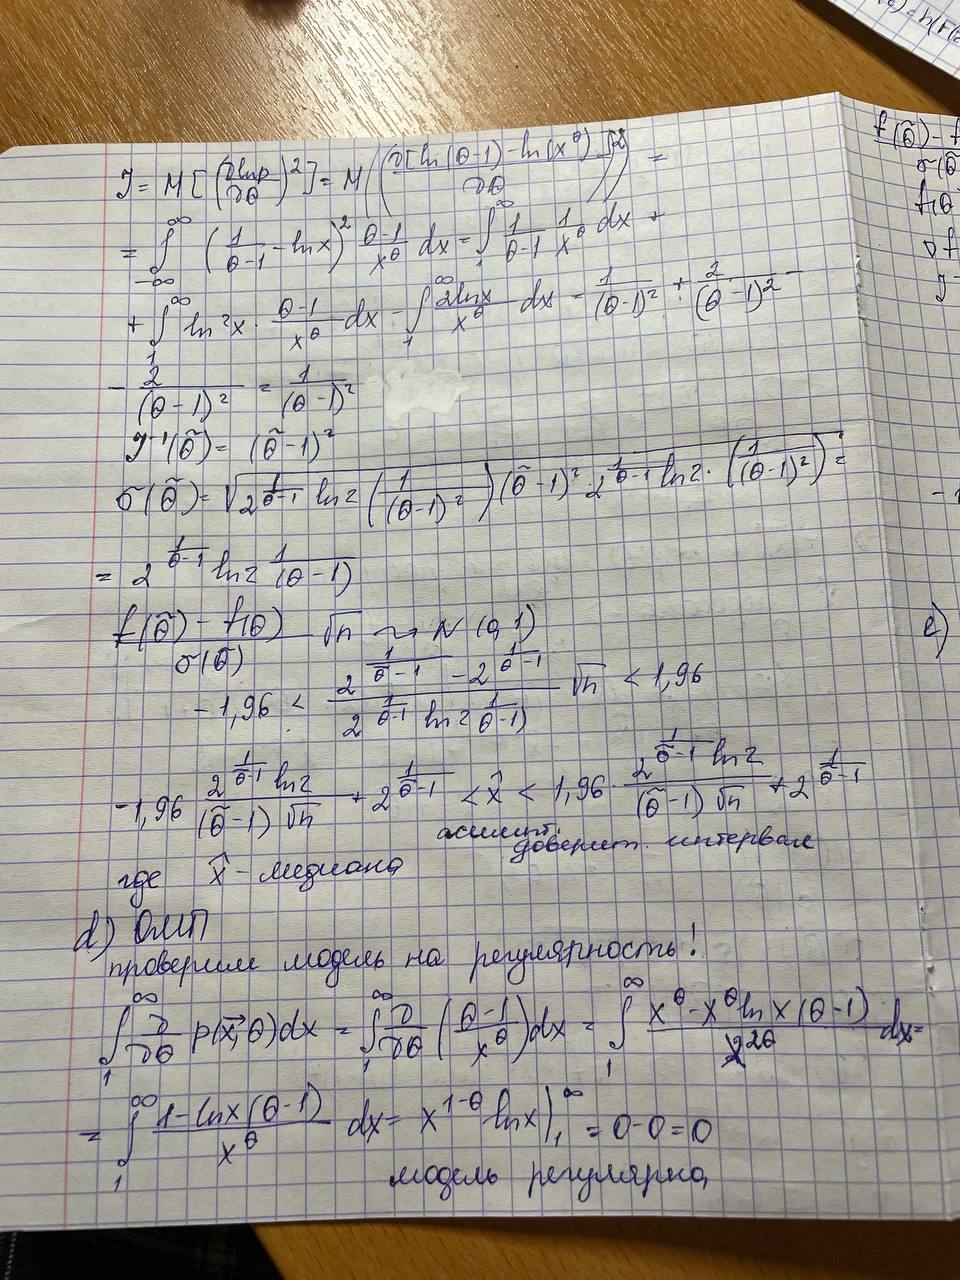 J = M[(∂lnp/∂θ)²] = M((∂[ln(θ-1) - ln(x^θ)]/∂θ)²) =
= ∫_{-∞}^{∞} (1/(θ-1) - lnx)² (θ-1)/x^θ dx = ∫_1^∞ 1/(θ-1) 1/x^θ dx +
+ ∫_1^∞ ln²x · (θ-1)/x^θ dx - ∫_1^∞ 2lnx/x^θ dx = 1/(θ-1)² + 2/(θ-1)² -
- 2/(θ-1)² = 1/(θ-1)²
J⁻¹(θ̃) = (θ̃-1)²
σ(θ̃) = √(2^{1/(θ-1)} ln2 (1/(θ-1)²)(θ̃-1)² 2^{1/(θ-1)} ln2 · (1/(θ-1)²)) =
= 2^{1/(θ-1)} ln2 1/(θ-1)
(f(θ̃) - f(θ))/σ(θ̃) √n ⇝ N(0,1)
-1,96 < (2^{1/(θ̃-1)} - 2^{1/(θ-1)})/(2^{1/(θ̃-1)} ln2 1/(θ-1)) √n < 1,96
-1,96 (2^{1/(θ̃-1)} ln2)/((θ̃-1)√n) + 2^{1/(θ̃-1)} < x̂ < 1,96 · (2^{1/(θ̃-1)} ln2)/((θ̃-1)√n) + 2^{1/(θ̃-1)}
асимпт.
доверит. интервал
где x̂ - медиана
d) ОМП
проверим модель на регулярность!
∫_1^∞ ∂/∂θ p(x⃗,θ)dx = ∫_1^∞ ∂/∂θ ((θ-1)/x^θ)dx = ∫_1^∞ (x^θ - x^θ lnx(θ-1))/x^{2θ} dx =
= ∫_1^∞ (1 - lnx(θ-1))/x^θ dx = x^{1-θ} lnx|_1^∞ = 0-0=0
модель регулярна
f(θ̃) - f
σ(θ̃
f(θ
∇f
J-
-1
e)